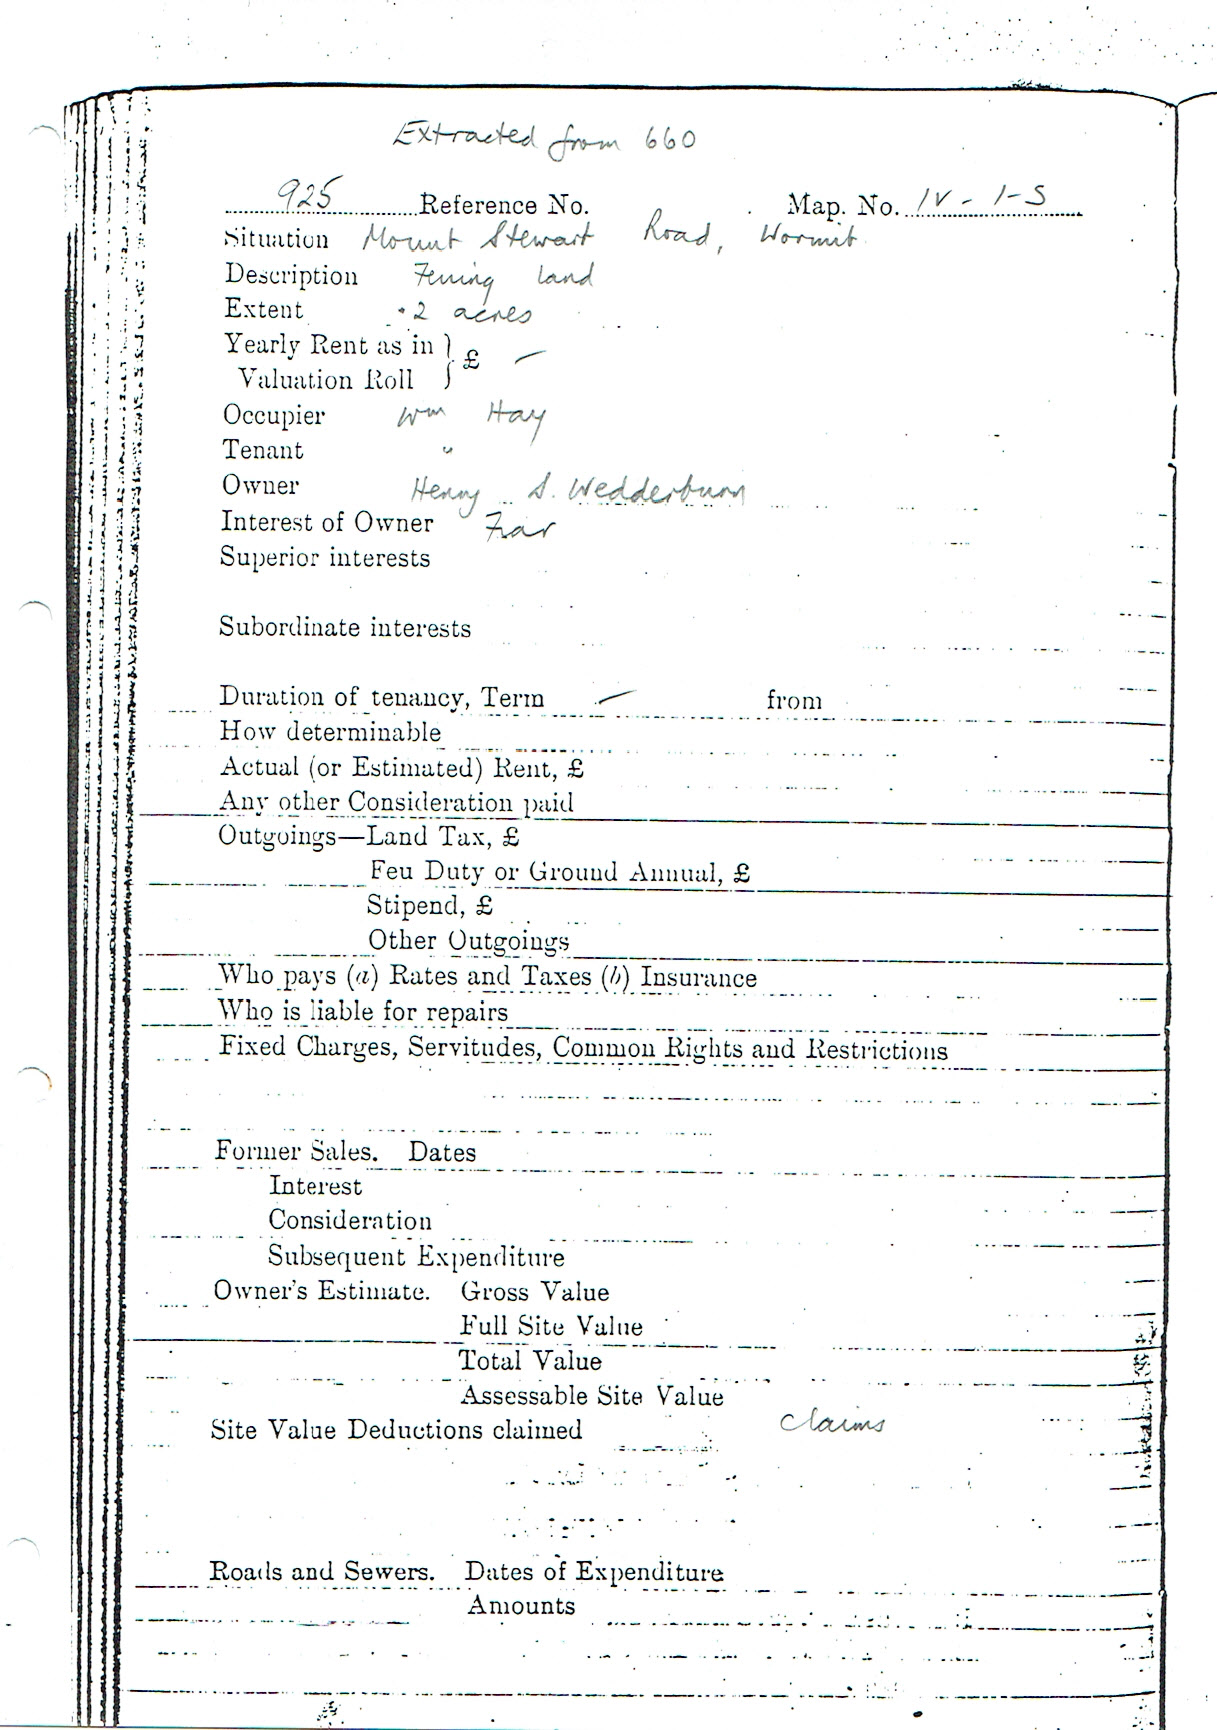 Extracted from 660
925 Reference No. Map. No. IV - 1-S
Situation Mount Stewart Road, Wormit
Description Feuing land
Extent ·2 acres
Yearly Rent as in } £ —
Valuation Roll
Occupier Wm Hay
Tenant "
Owner Henry S. Wedderburn
Interest of Owner Fiar
Superior interests
Subordinate interests
Duration of tenancy, Term — from
How determinable
Actual (or Estimated) Rent, £
Any other Consideration paid
Outgoings—Land Tax, £
Feu Duty or Ground Annual, £
Stipend, £
Other Outgoings
Who pays (a) Rates and Taxes (b) Insurance
Who is liable for repairs
Fixed Charges, Servitudes, Common Rights and Restrictions
Former Sales. Dates
Interest
Consideration
Subsequent Expenditure
Owner's Estimate. Gross Value
Full Site Value
Total Value
Assessable Site Value
Site Value Deductions claimed claims
Roads and Sewers. Dates of Expenditure
Amounts